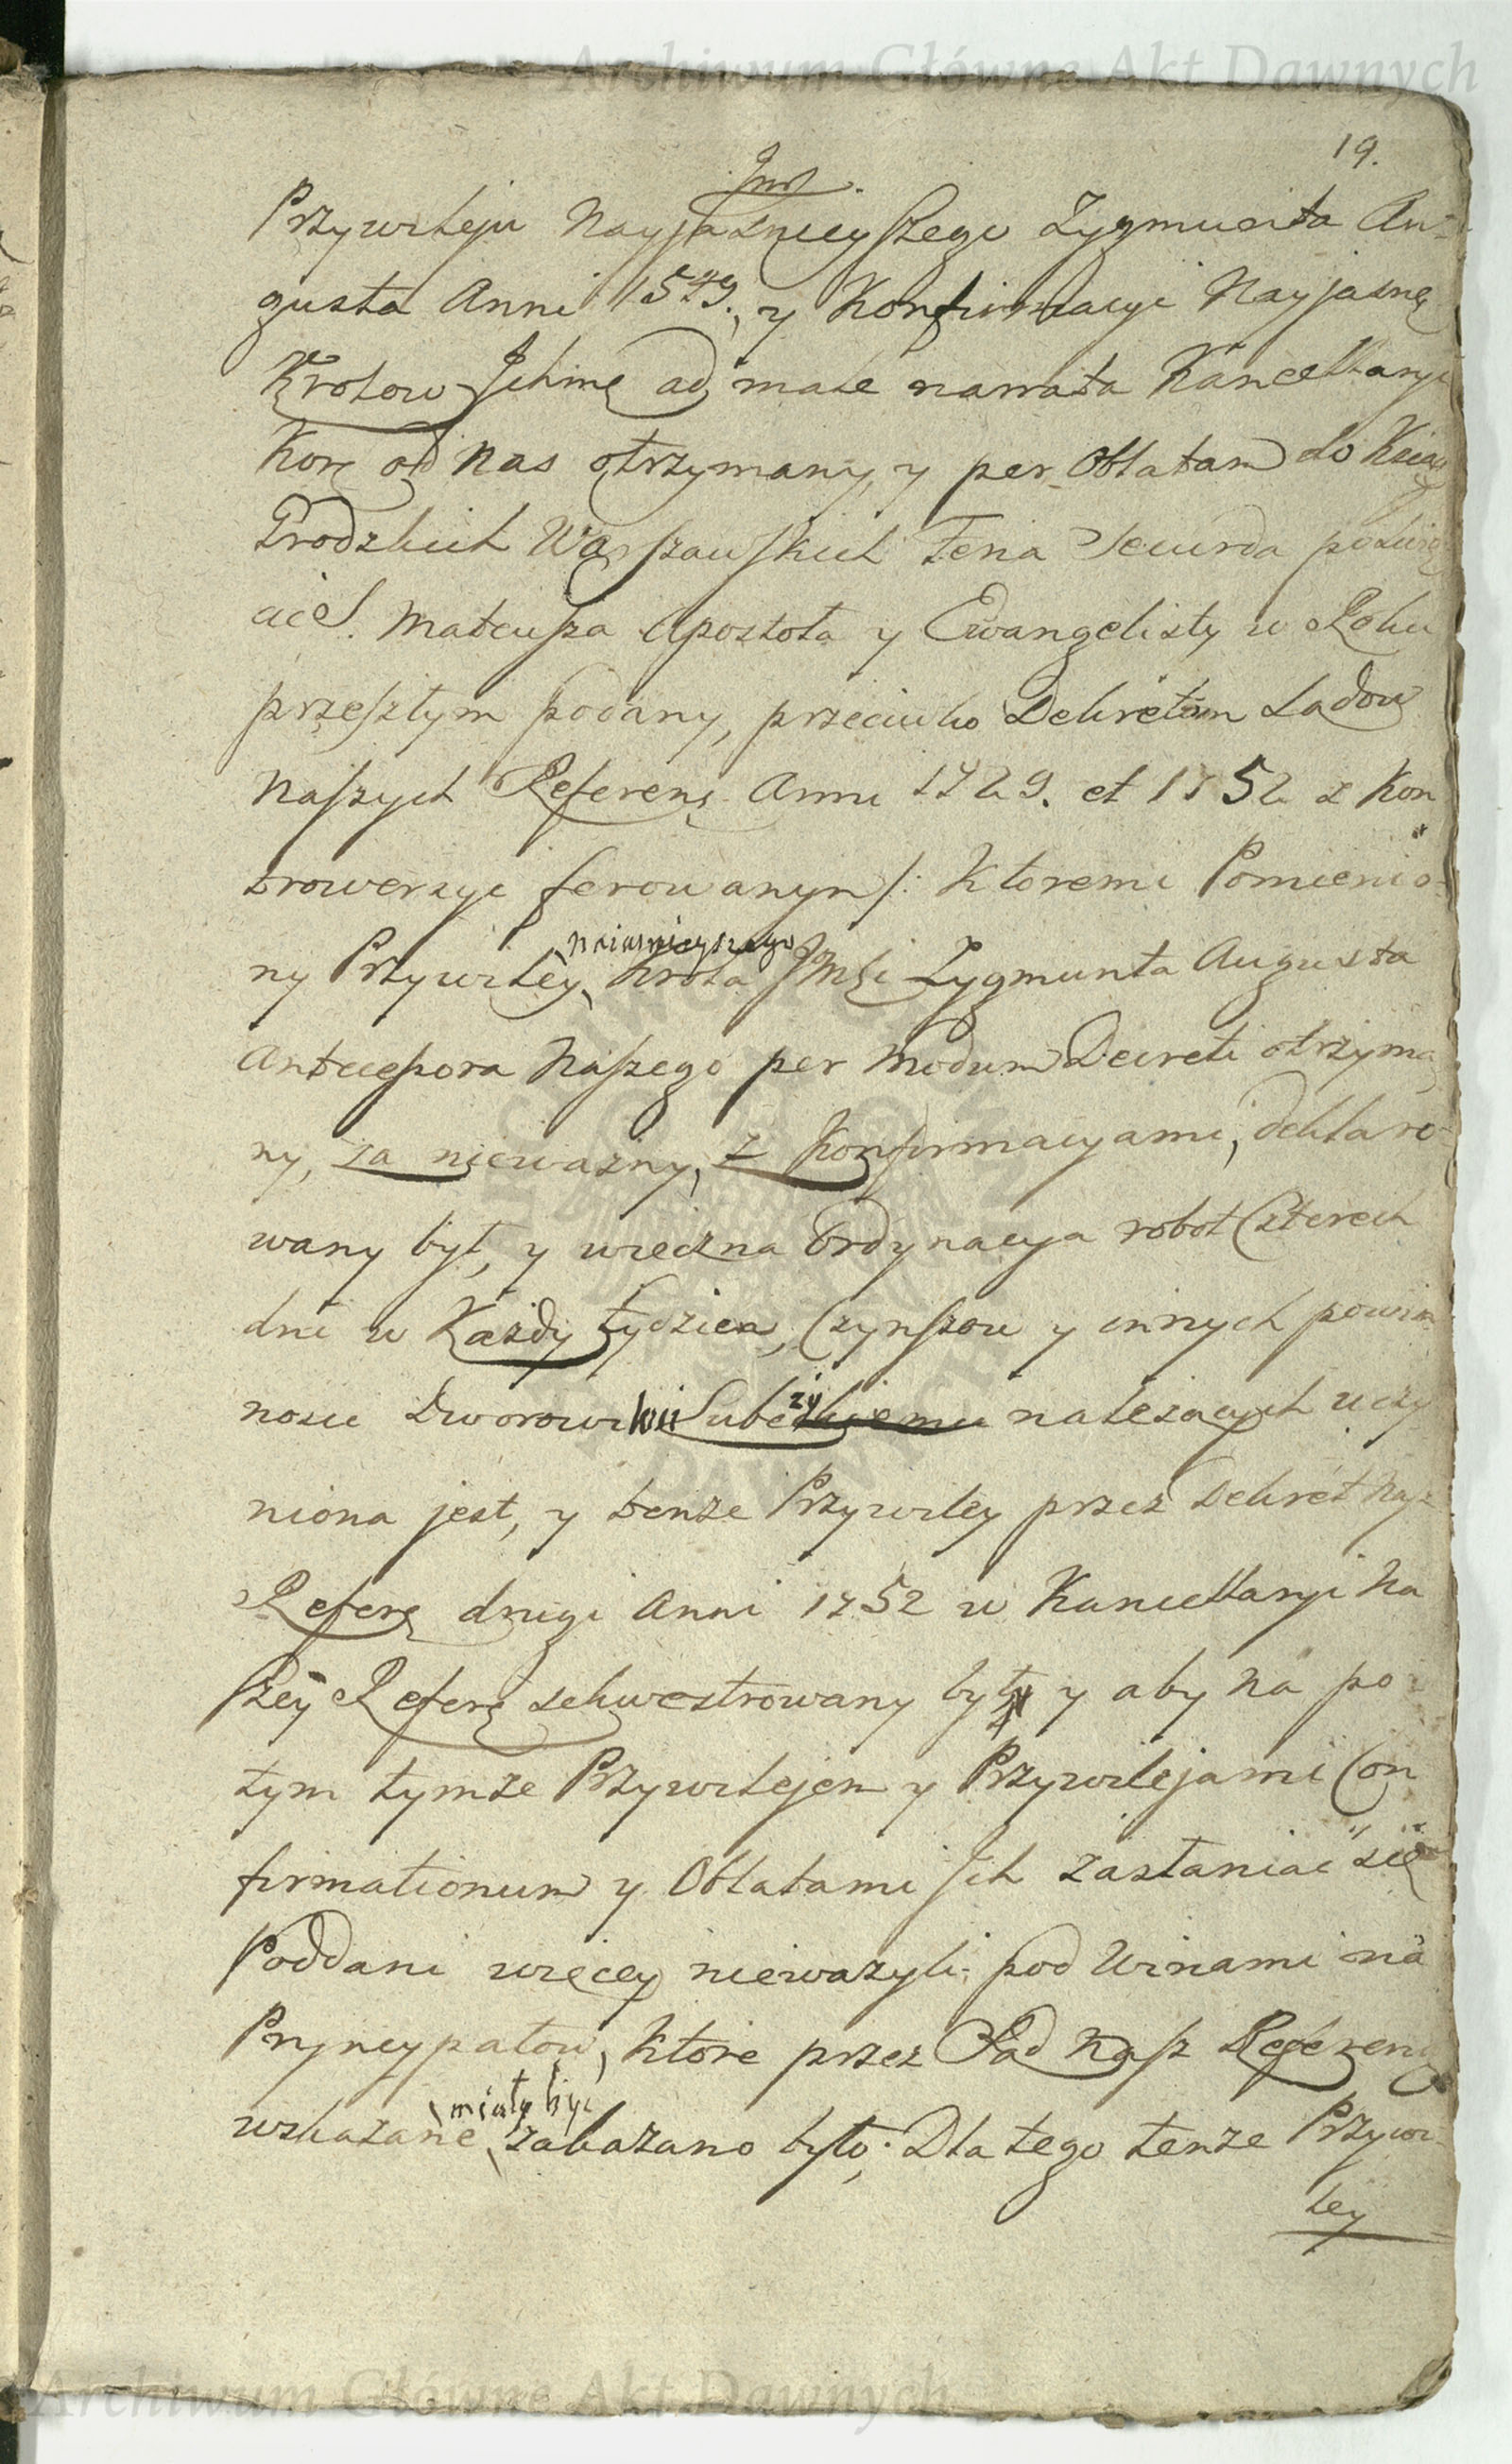 Archiwum Główne Akt Dawnych
19.
Przywileju Nayjasnieyszego Zygmunta Au-
gusta Anni 1549., y Konfirmacyi Nayjasnę
Krolow Ichmę ad male narrata Kancellaryi
Korę od Nas otrzymany, y per Oblatam do Ksiąg
Grodzkich Warszawskich Feria Secunda po
cie S. Mateusza Apostoła y Ewangelisty w Roku
przeszłym podany, przeciwko Dekretom Sadow
Naszych Referenę Anni 1729. et 1752 z Kon
trowersyi ferowanym /: Ktoremi Pomienio-
naiasnieyszego
ny Przywiley Krola Jmści Zygmunta Augusta
Antecessora Naszego per Modum Decreti otrzyma
ny, za niewazny, z Konfirmacyami, deklaro-
wany był, y wieczna Ordynacya robot Czterech
dni w Każdy tydzien, Czynszow y innych powin
nosci Dworowi należących uczy
niona jest, y tenze Przywiley przez Dekret Nasz
Referę drugi Anni 1752 w Kancellaryi Na
szey Referę sekwestrowany był y aby na po
tym tymze Przywilejem y Przywilejami Con
firmationum y Oblatami Ich zastaniać się
Poddani więcey nieważyli; pod Winami na
Pryncypałow, Ktore przez Sad Nasz Referen
miały być
wskazane zakazano było; Dla tego tenze Przywi-
ley
Archiwum Główne Akt Dawnych